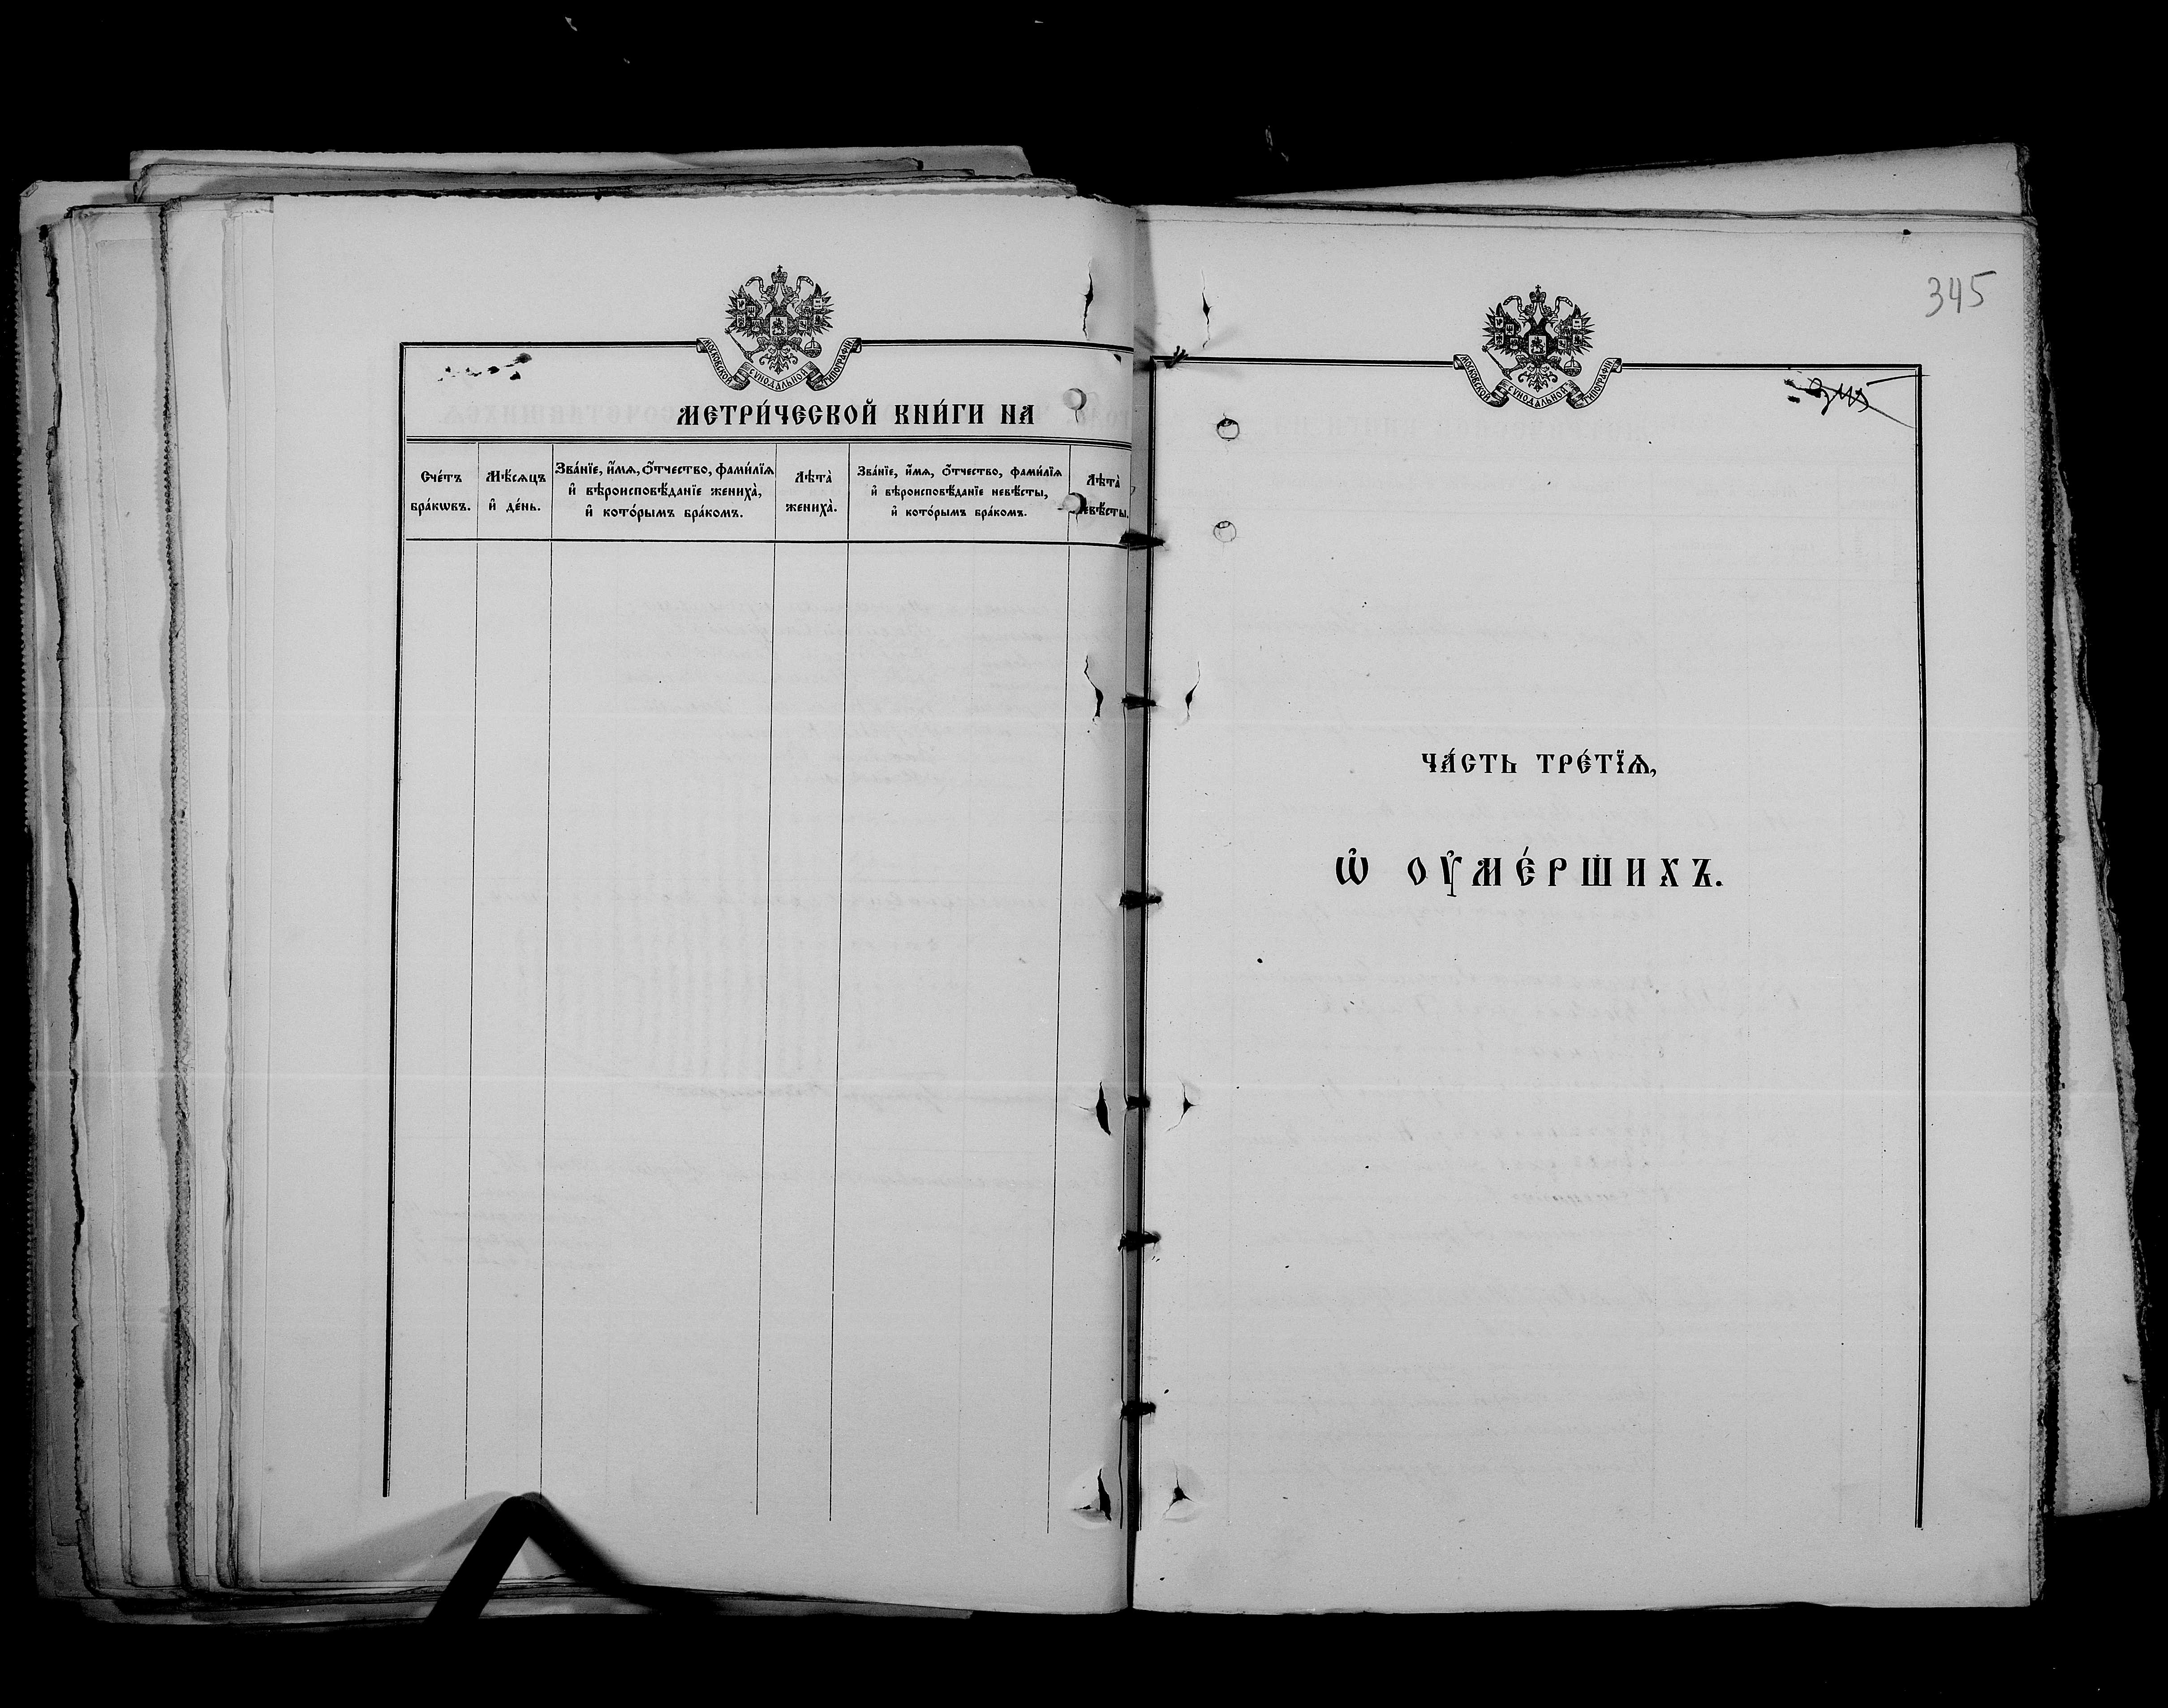 МОСКОВСКОЙ СѴНОДАЛЬНОЙ ТИПОГРАФІИ
МЕТРИ́ЧЕСКОЙ КНИ́ГИ НА
Сче́тъ
бра́кѡвъ.
Мѣ́сѧцъ
и҆ де́нь.
Зва́нїе, и҆́мѧ, ѻ҆́тчество, фами́лїѧ
и҆ вѣроисповѣ́данїе жениха̀,
и҆ кото́рымъ бра́комъ.
Лѣта̀
жениха̀.
Зва́нїе, и҆́мѧ, ѻ҆́тчество, фами́лїѧ
и҆ вѣроисповѣ́данїе невѣ́сты,
и҆ кото́рымъ бра́комъ.
Лѣта̀
невѣ́сты.
345
МОСКОВСКОЙ СѴНОДАЛЬНОЙ ТИПОГРАФІИ
345
ЧА́СТЬ ТРЕ́ТЇѦ,
Ѡ҆ ОУ҆МЕ́РШИХЪ.